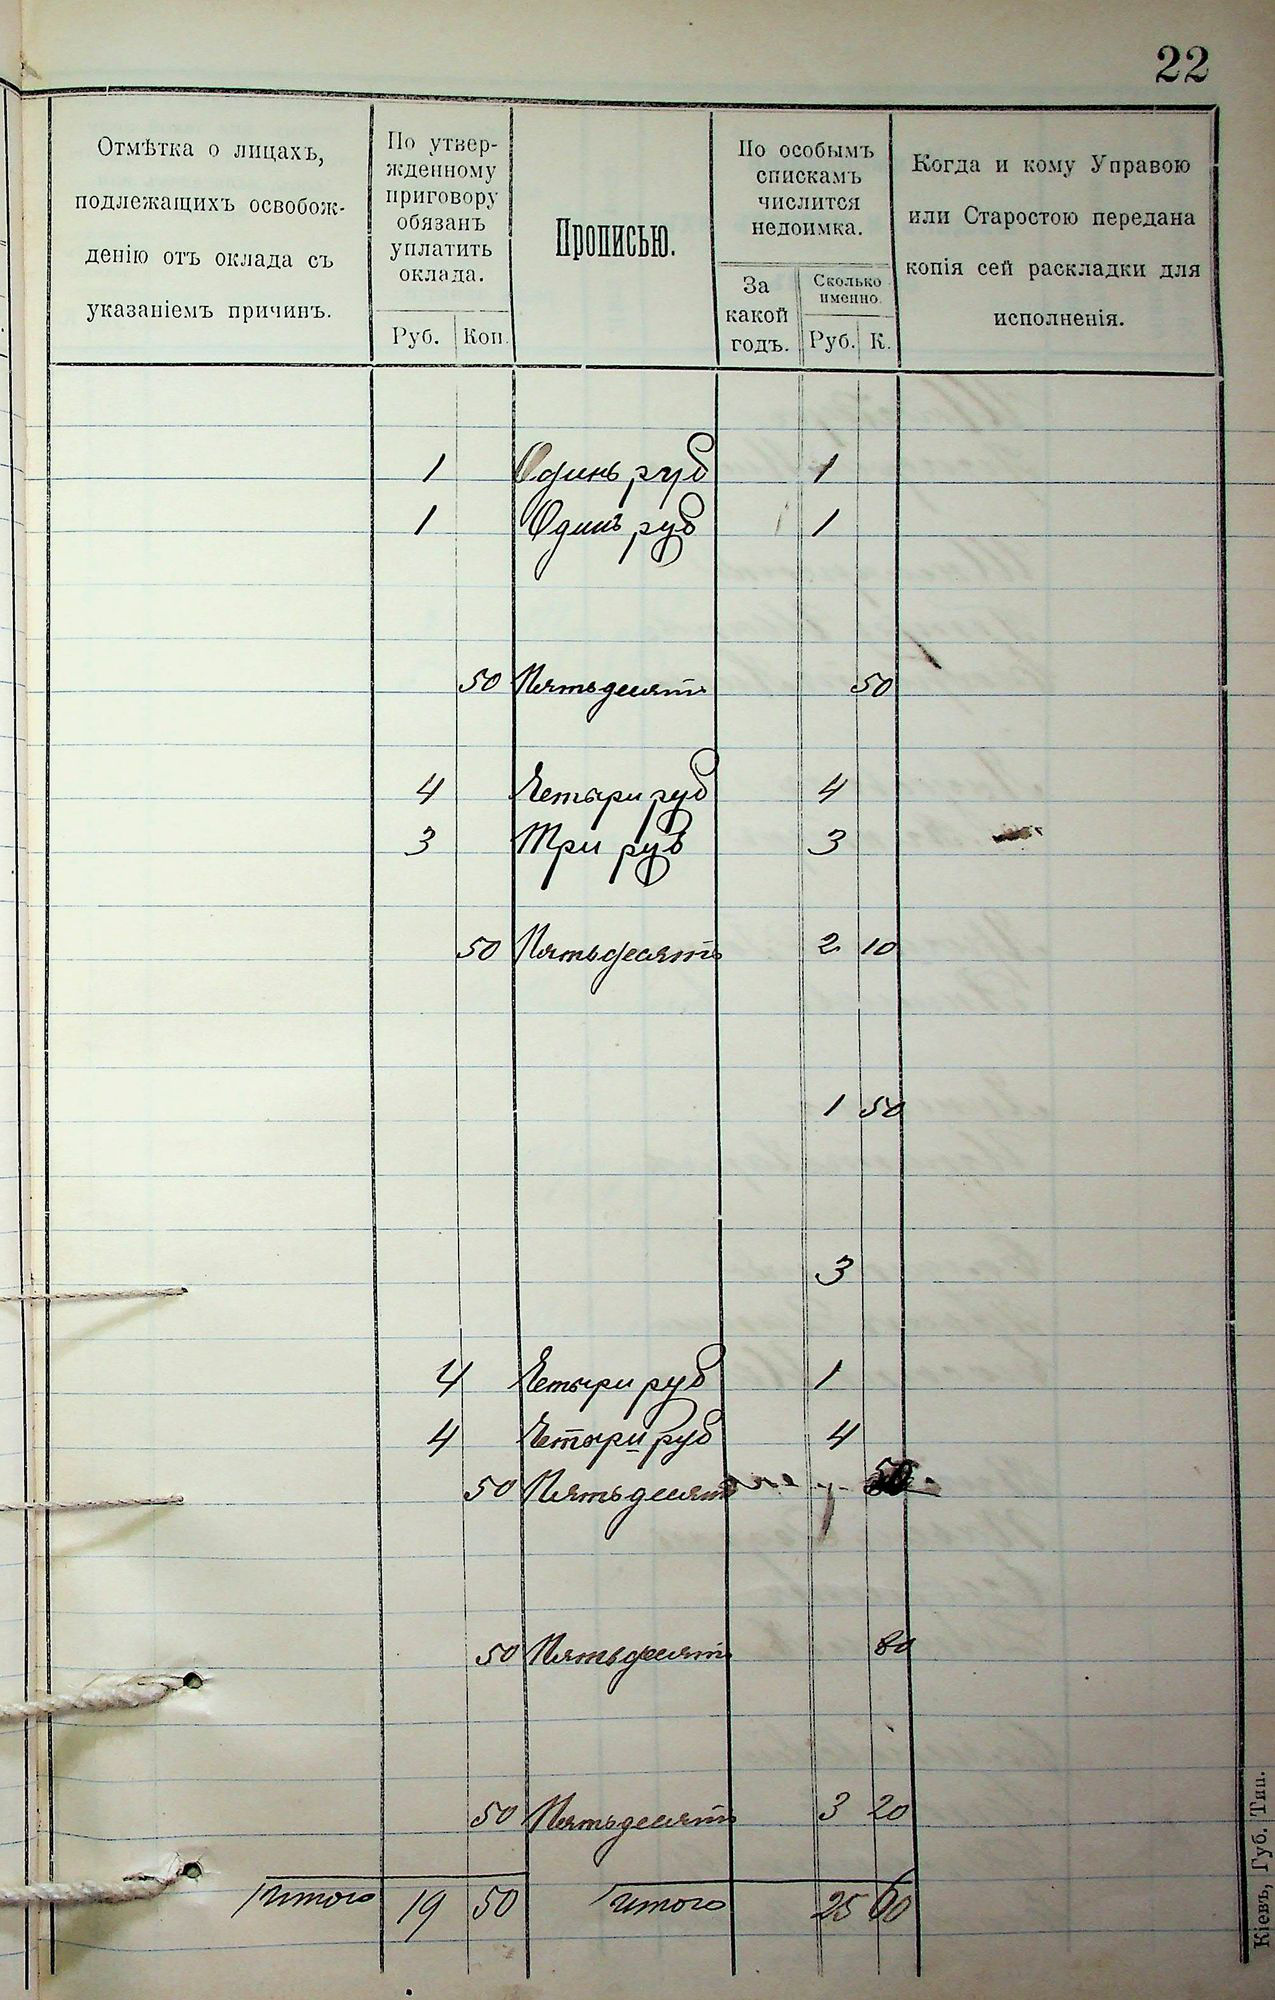 22
Отмѣтка о лицахъ,
подлежащихъ освобож-
денію отъ оклада съ
указаніемъ причинъ.
По утвер-
жденному
приговору
обязанъ
уплатить
оклада.
Руб. Коп.
Прописью.
По особымъ
спискамъ
числится
недоимка.
За
какой
годъ.
Сколько
именно.
Руб. К.
Когда и кому Управою
или Старостою передана
копія сей раскладки для
исполненія.
1 Одинъ руб 1
1 Одинъ руб 1
50 Пятьдесятъ 50
4 Четыри руб 4
3 Три руб 3
50 Пятьдесятъ 2 10
1 50
3
4 Четыри руб 1
4 Четыри руб 4
50 Пятьдесят 50
50 Пятьдесятъ 80
50 Пятьдесятъ 3 20
Итого 19 50 Итого 25 60
Кіевъ, Губ. Тип.